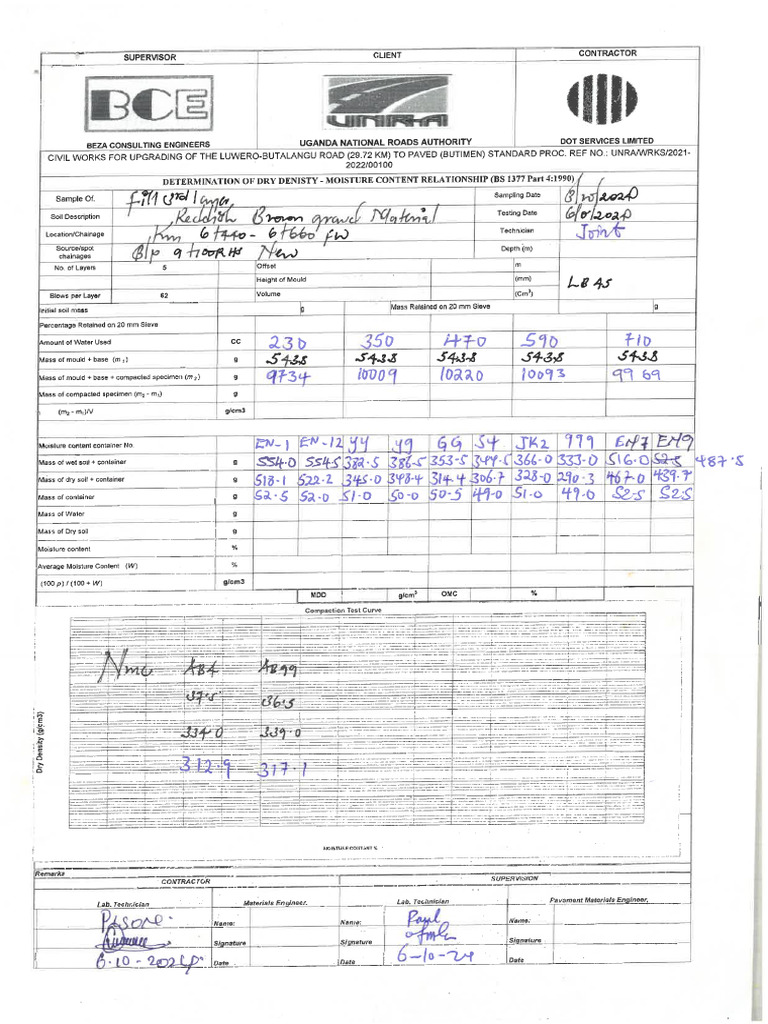 SUPERVISOR CLIENT CONTRACTOR
BCE UNRA
BEZA CONSULTING ENGINEERS UGANDA NATIONAL ROADS AUTHORITY DOT SERVICES LIMITED
CIVIL WORKS FOR UPGRADING OF THE LUWERO-BUTALANGU ROAD (29.72 KM) TO PAVED (BUTIMEN) STANDARD PROC. REF NO.: UNRA/WRKS/2021-
2022/00100
DETERMINATION OF DRY DENISTY - MOISTURE CONTENT RELATIONSHIP (BS 1377 Part 4:1990)
Sample Of. Fill 3rd layer Sampling Date
Soil Description Reddish Brown gravel Material Testing Date
Location/Chainage Km 6+440 - 6+660 FW Technician Joint
Source/spot chainages B/p 9+100RHS New Depth (m)
No. of Layers 5 Offset m
Height of Mould (mm) LB 45
Blows per Layer 62 Volume (Cm3)
Initial soil mass g Mass Retained on 20 mm Sieve g
Percentage Retained on 20 mm Sieve
Amount of Water Used CC 230 350 470 590 710
Mass of mould + base (m1) g 5438 5438 5438 5438 5438
Mass of mould + base + compacted specimen (m2) g 9734 10009 10220 10093 9969
Mass of compacted specimen (m2 - m1) g
(m2 - m1)/V g/cm3
Moisture content container No. EN-1 EN-12 YY Y9 GG S4 JK2 999 EM7 EM9
Mass of wet soil + container g 554.0 554.5 382.5 386.5 353.5 344.5 366.0 333.0 516.0 52.5 487.5
Mass of dry soil + container g 518.1 522.2 345.0 348.4 314.4 306.7 328.0 290.3 467.0 439.7
Mass of container g 52.5 52.0 51.0 50.0 50.5 49.0 51.0 49.0 52.5 52.5
Mass of Water g
Mass of Dry soil g
Moisture content %
Average Moisture Content (W) %
(100 p) / (100 + W) g/cm3
MDD g/cm3 OMC %
Compaction Test Curve
Nmc AB4 AB99
37.5 36.5
334.0 339.0
312.9 317.1
Dry Density (g/cm3)
Remarks
CONTRACTOR SUPERVISION
Lab. Technician Materials Engineer. Lab. Technician Pavement Materials Engineer,
Name: Name: Paul Name:
Signature Signature Signature
6-10-2024 Date Date 6-10-24 Date